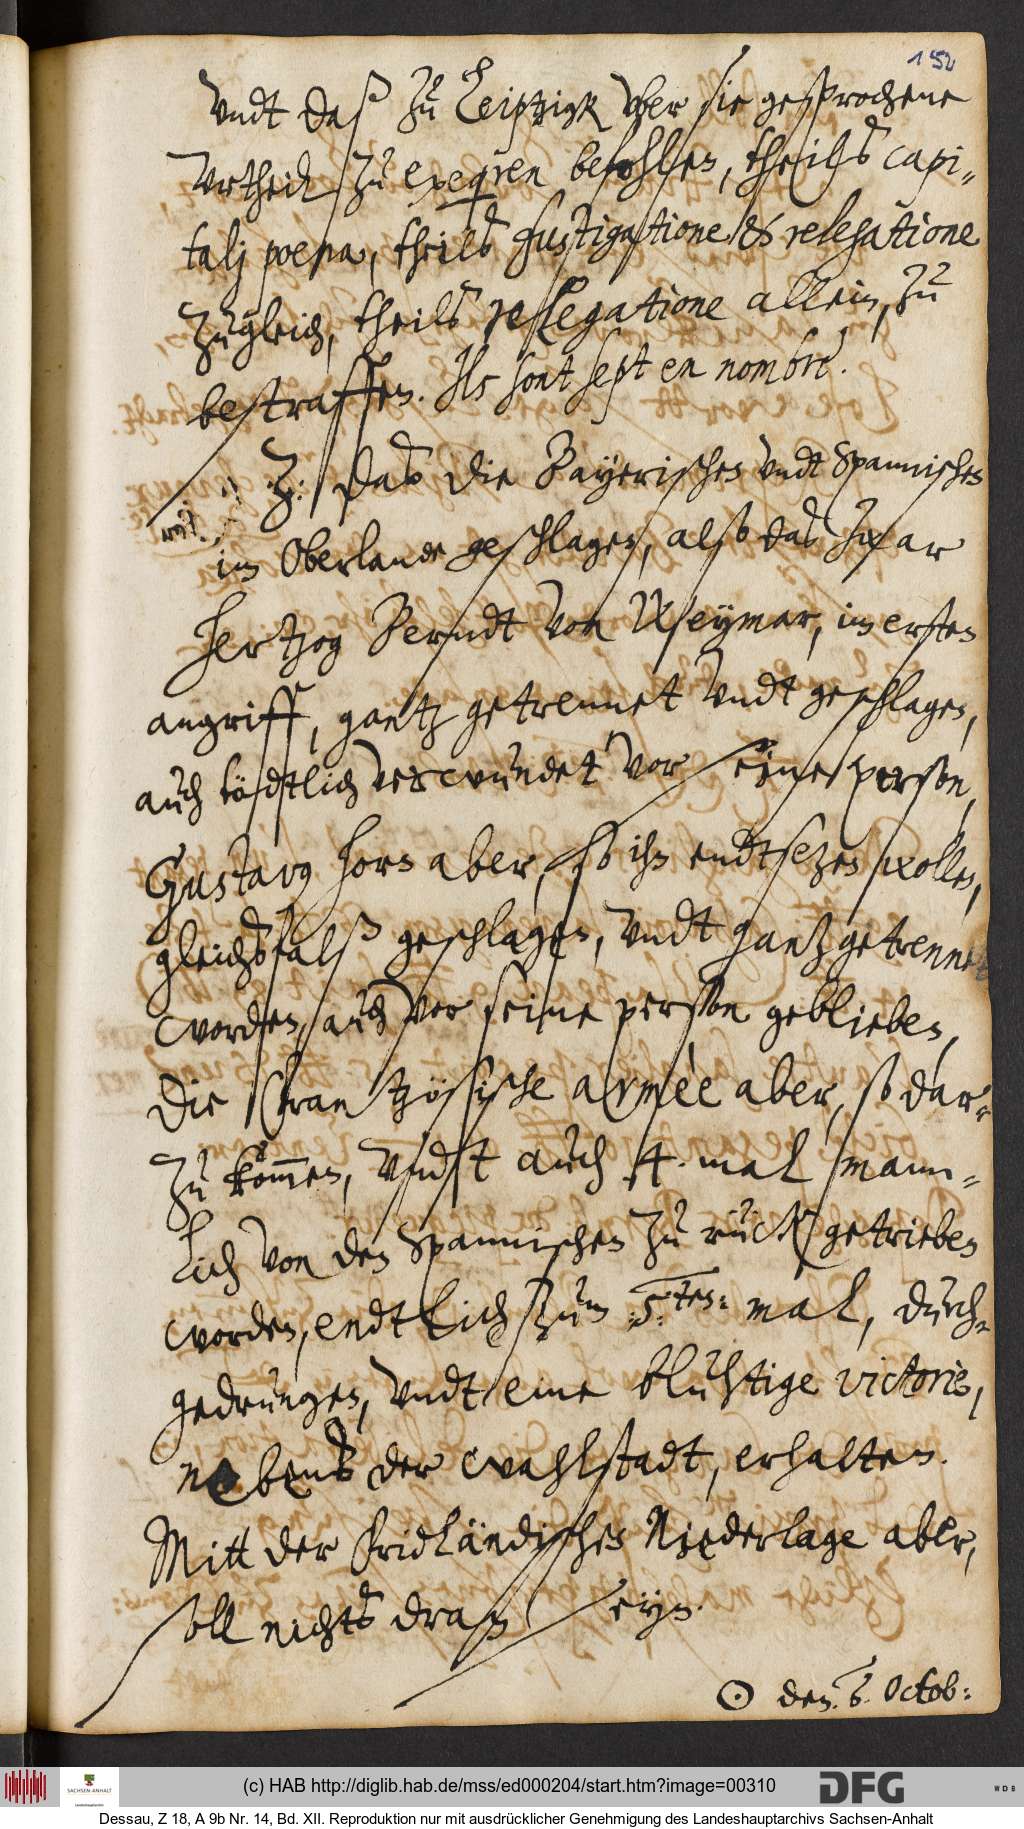 152
Vndt daß zu Leiptzigk vber sie gesprochene
Vrtheil zu exequiren befohlen, theils capi-
tali poena, theils fustigatione & relegatione
zugleich, theils relegatione allein, zu
bestraffen. Ils sont sept en nombre.
2: Das die Bayerischen vndt Spannischen
im Oberlande geschlagen, also das zwar
Hertzog Berndt von Weymar, im ersten
angriff, gantz getrennet vndt geschlagen,
auch tödtlich verwundet vor seine person,
Gustavus Horn aber, so ihn endtsetzen wollen,
gleichsfalß geschlagen, vndt gantz getrennet
worden, auch vor seine person geblieben,
Die Frantzösische armèe aber, so dar-
zu kommen, vndt auch 4. mal mann-
lich von den Spannischen zu rück getrieben
worden, endtlich zum :5.ten: mal, durch-
gedrungen, vndt eine bluhtige victorie,
nebens der wahlstadt, erhalten.
Mitt der Fridländischen Niederlage aber,
soll nichts dran seyn.
☉ den. 6. Octob:
(c) HAB http://diglib.hab.de/mss/ed000204/start.htm?image=00310
SACHSEN-ANHALT
DFG
WDB
Dessau, Z 18, A 9b Nr. 14, Bd. XII. Reproduktion nur mit ausdrücklicher Genehmigung des Landeshauptarchivs Sachsen-Anhalt